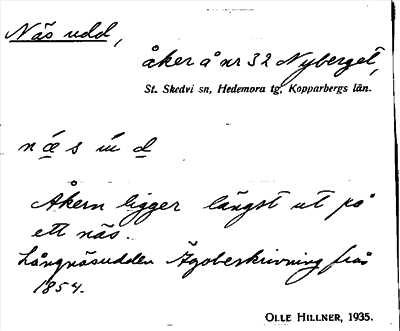 Näs udd,
åker å nr 32 Nyberget,
St. Skedvi sn, Hedemora tg, Kopparbergs län.
næs úd
Åkern ligger längst ut på
ett näs.
Långnäsudden Ägobeskrivning från
1854.
OLLE HILLNER, 1935.